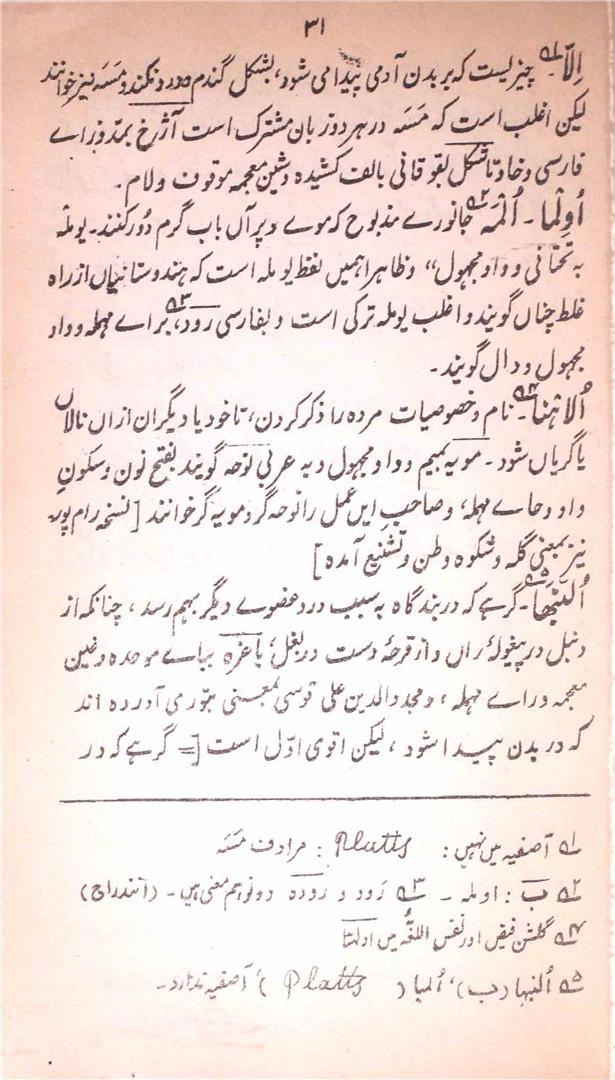 ۳۱
اِلّا۔ چیزیست که بر بدن آدمی پیدا می شود، بشکل گندم و درد نکند و مَسَه نیز خوانند
لیکن اغلب است که مَسَه در هر دو زبان مشترک است آژخ بمدّ و زاے
فارسی و خا و تاشکل بفوقانی بالف کشیده و شین معجمه موقوف و لام۔
اُولما۔ اُلمہ جانورے مذبوح که موے و پر آں باب گرم دُور کنند۔ یوملہ
به تحتانی و واو مجهول" و ظاهرا همیں لفظ یوملہ است که هندوستانیاں از راه
غلط چناں گویند و اغلب یوملہ ترکی است و بفارسی رود، براے مهمله و واو
مجهول و دال گویند۔
اُلاہنا۔ نام و خصوصیات مرده را ذکر کردن، تا خود یا دیگران ازاں نالاں
یا گریاں شود۔ مویه بمیم و واو مجهول و به عربی نوحه گویند بفتح نون و سکونِ
واو و حاے مهمله، و صاحبِ ایں عمل را نوحه گر و مویه گر خوانند [نسخه رام پور
نیز بمعنی گله و شکوه و طن و تشنیع آمده]
اُلبنہا۔ گرہے که در بندگاه به سبب درد عضوے دیگر بهم رسد، چنانکه از
دنبل در بیغولۂ راں و از قرحۂ دست در بغل؛ باغره بباے موحده و غین
معجمه و راے مهمله، و مجدد الدین علی قوسی بمعنی آورده اند
که در بدن پیدا شود، لیکن اقوی اوّل است [= گرہے که در
۱ آصفیہ میں نہیں: Platts : مرادف مَسَہ
۲ ب: اولمہ۔ ۳ رَود و رودہ دونو ہم معنی ہیں۔ (آنندراج)
۴ گلشن فیض اور نفس اللغہ میں اولہنا
۵ اُلنبہا (ب)، اُلمبا (Platts)، آصفیہ ندارد۔